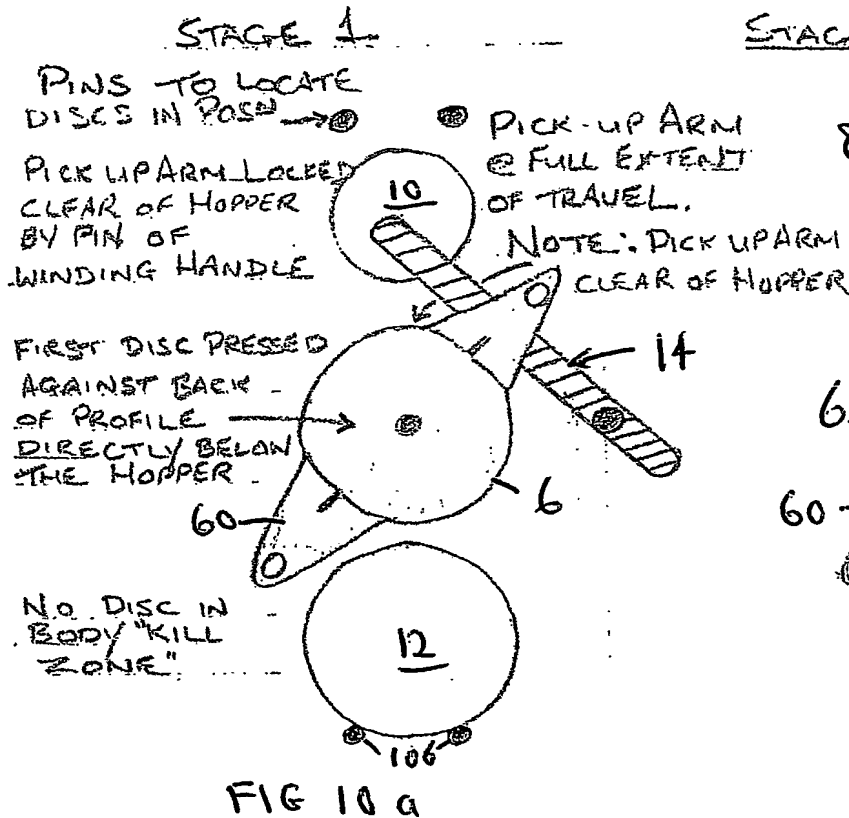 STAGE 1
PINS TO LOCATE
DISCS IN POSN
PICK UP ARM LOCKED
CLEAR OF HOPPER
BY PIN OF
WINDING HANDLE
10
PICK-UP ARM
@ FULL EXTENT
OF TRAVEL.
NOTE: PICK UP ARM
CLEAR OF HOPPER
FIRST DISC PRESSED
AGAINST BACK
OF PROFILE
DIRECTLY BELOW
THE HOPPER
14
6
60
NO DISC IN
BODY "KILL
ZONE"
12
106
FIG 10 a
STAG
8
6
60